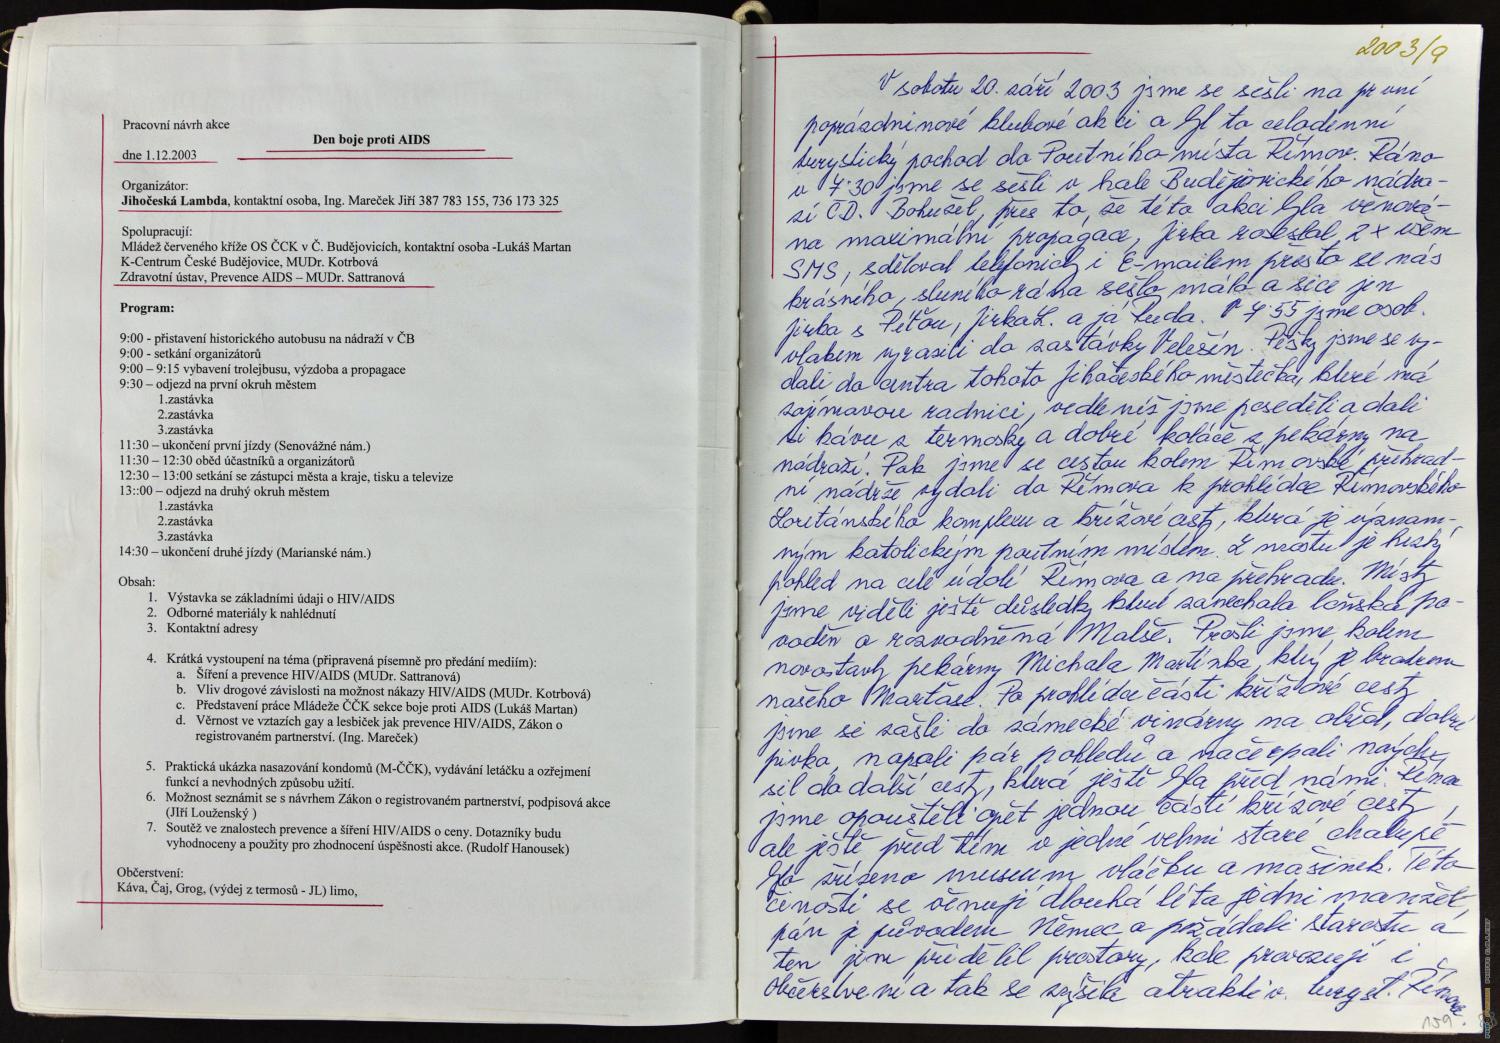 Pracovní návrh akce
Den boje proti AIDS
dne 1.12.2003
Organizátor:
Jihočeská Lambda, kontaktní osoba, Ing. Mareček Jiří 387 783 155, 736 173 325
Spolupracují:
Mládež červeného kříže OS ČČK v Č. Budějovicích, kontaktní osoba -Lukáš Martan
K-Centrum České Budějovice, MUDr. Kotrbová
Zdravotní ústav, Prevence AIDS – MUDr. Sattranová
Program:
9:00 - přistavení historického autobusu na nádraží v ČB
9:00 - setkání organizátorů
9:00 – 9:15 vybavení trolejbusu, výzdoba a propagace
9:30 – odjezd na první okruh městem
1.zastávka
2.zastávka
3.zastávka
11:30 – ukončení první jízdy (Senovážné nám.)
11:30 – 12:30 oběd účastníků a organizátorů
12:30 – 13:00 setkání se zástupci města a kraje, tisku a televize
13::00 – odjezd na druhý okruh městem
1.zastávka
2.zastávka
3.zastávka
14:30 – ukončení druhé jízdy (Marianské nám.)
Obsah:
1. Výstavka se základními údaji o HIV/AIDS
2. Odborné materiály k nahlédnutí
3. Kontaktní adresy
4. Krátká vystoupení na téma (připravená písemně pro předání mediím):
a. Šíření a prevence HIV/AIDS (MUDr. Sattranová)
b. Vliv drogové závislosti na možnost nákazy HIV/AIDS (MUDr. Kotrbová)
c. Představení práce Mládeže ČČK sekce boje proti AIDS (Lukáš Martan)
d. Věrnost ve vztazích gay a lesbiček jak prevence HIV/AIDS, Zákon o
registrovaném partnerství. (Ing. Mareček)
5. Praktická ukázka nasazování kondomů (M-ČČK), vydávání letáčku a ozřejmení
funkcí a nevhodných způsobu užití.
6. Možnost seznámit se s návrhem Zákon o registrovaném partnerství, podpisová akce
(JIří Louženský )
7. Soutěž ve znalostech prevence a šíření HIV/AIDS o ceny. Dotazníky budu
vyhodnoceny a použity pro zhodnocení úspěšnosti akce. (Rudolf Hanousek)
Občerstvení:
Káva, Čaj, Grog, (výdej z termosů - JL) limo,
2003/9
V sobotu 20. září 2003 jsme se sešli na první
poprázdninové klubové akci a byl to celodenní
turystický pochod do Poutního místa Římov. Ráno
v 7:30 jsme se sešli v hale Budějovického nádra-
ží ČD. Bohužel, přes to, že této akci byla věnová-
na maximální propagace, Jirka rozeslal 2x všem
SMS, sděloval telefonicky i E-mailem přesto se nás
krásného, sluného rána sešlo málo a sice jen
Jirka s Péťou, Jirka L. a já Ruda. V 7:55 jsme osob.
vlakem vyrazili do zastávky Velešín. Pěšky jsme se vy-
dali do centra tohoto Jihočeského městečka, které má
zajímavou radnici, vedle níž jsme poseděli a dali
si kávu z termosky a dobré koláče z pekárny na
nádraží. Pak jsme se cestou kolem Římovské přehrad-
ní nádrže vydali do Římova k prohlídce Římovského
Loritánského komplexu a křížové cesty, která je význam-
ným katolickým poutním místem. Z mostu je hezký
pohled na celé údolí Římova a na přehradu. Místy
jsme viděli ještě důsledky které zanechala loňská po-
vodeň a rozvodněná Malše. Prošli jsme kolem
novostavby pekárny Michala Martínka, který je bratrem
našeho Marťase. Po prohlídce části křížové cesty
jsme se zašli do zámecké vinárny na oběd, dobré
pivko, napsali pár pohledů a načerpali nových
sil do další cesty, která ještě byla před námi. Římov
jsme opouštěli opět jednou částí křížové cesty,
ale ještě před tím v jedné velmi staré chalupě
bylo zřízeno museum vláčku a mašinek. Této
činosti se věnují dlouhá léta jedni manžel.
pán je původem Němec a požádali starostu a
ten jim přidělil prostory, kde provozují i
občerstvení a tak se zvýšila atraktiv. turyst. Římova
159.